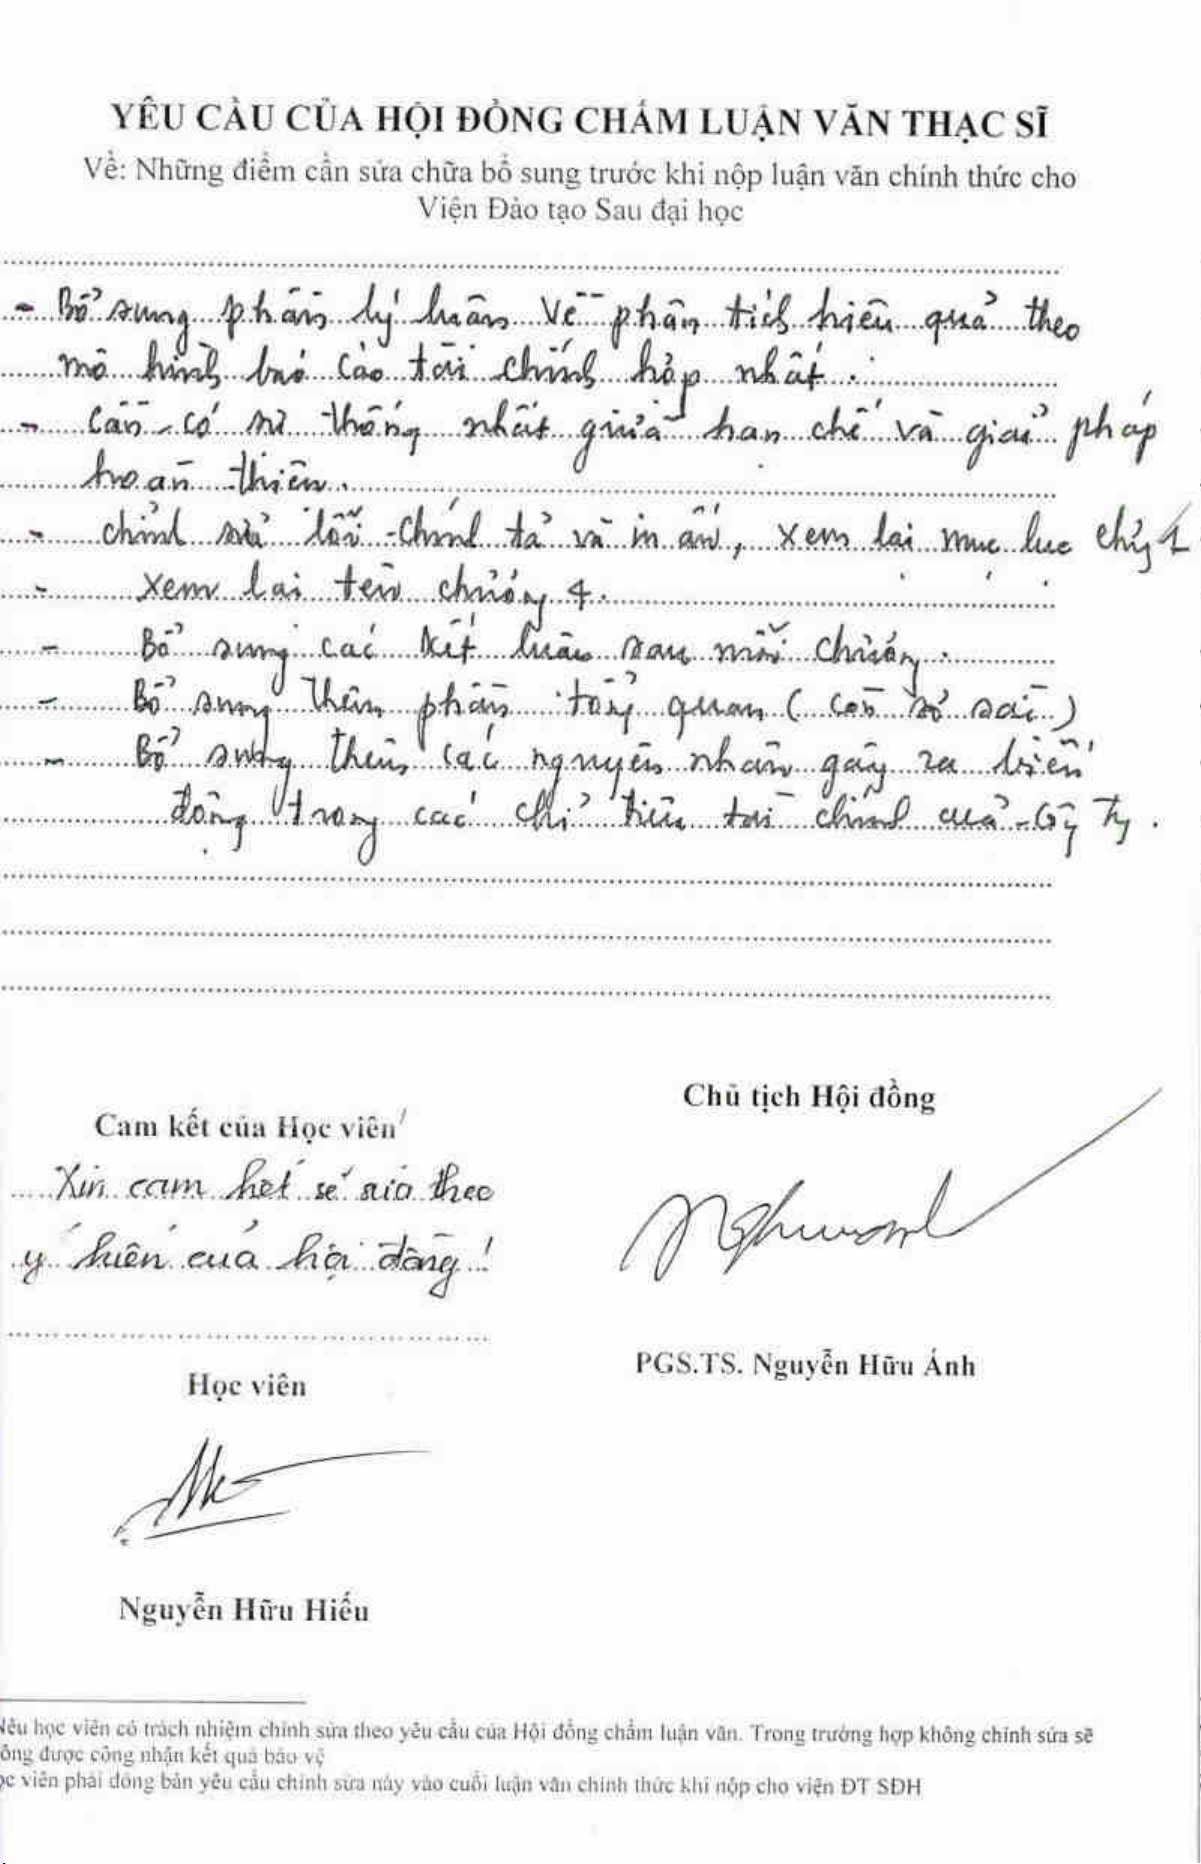 YÊU CẦU CỦA HỘI ĐỒNG CHẤM LUẬN VĂN THẠC SĨ
Về: Những điểm cần sửa chữa bổ sung trước khi nộp luận văn chính thức cho
Viện Đào tạo Sau đại học
- Bổ sung phần lý luận về phân tích hiệu quả theo
mô hình báo cáo tài chính hợp nhất.
- Cần có sự thống nhất giữa hạn chế và giải pháp
hoàn thiện.
- chỉnh sửa lỗi chính tả và in ấn, xem lại mục lục chương 1
- Xem lại tên chương 4.
- Bổ sung các kết luận sau mỗi chương.
- Bổ sung thêm phần tổng quan (còn sơ sài)
- Bổ sung thêm các nguyên nhân gây ra biến
động trong các chỉ tiêu tài chính của Công Ty.
Chủ tịch Hội đồng
Cam kết của Học viên
Xin cam kết sẽ sửa theo
ý kiến của hội đồng!
PGS.TS. Nguyễn Hữu Ánh
Học viên
Nguyễn Hữu Hiếu
Nếu học viên có trách nhiệm chỉnh sửa theo yêu cầu của Hội đồng chấm luận văn. Trong trường hợp không chỉnh sửa sẽ
ông được công nhận kết quả bảo vệ
ọc viên phải đóng bản yêu cầu chỉnh sửa này vào cuối luận văn chính thức khi nộp cho viện ĐT SĐH